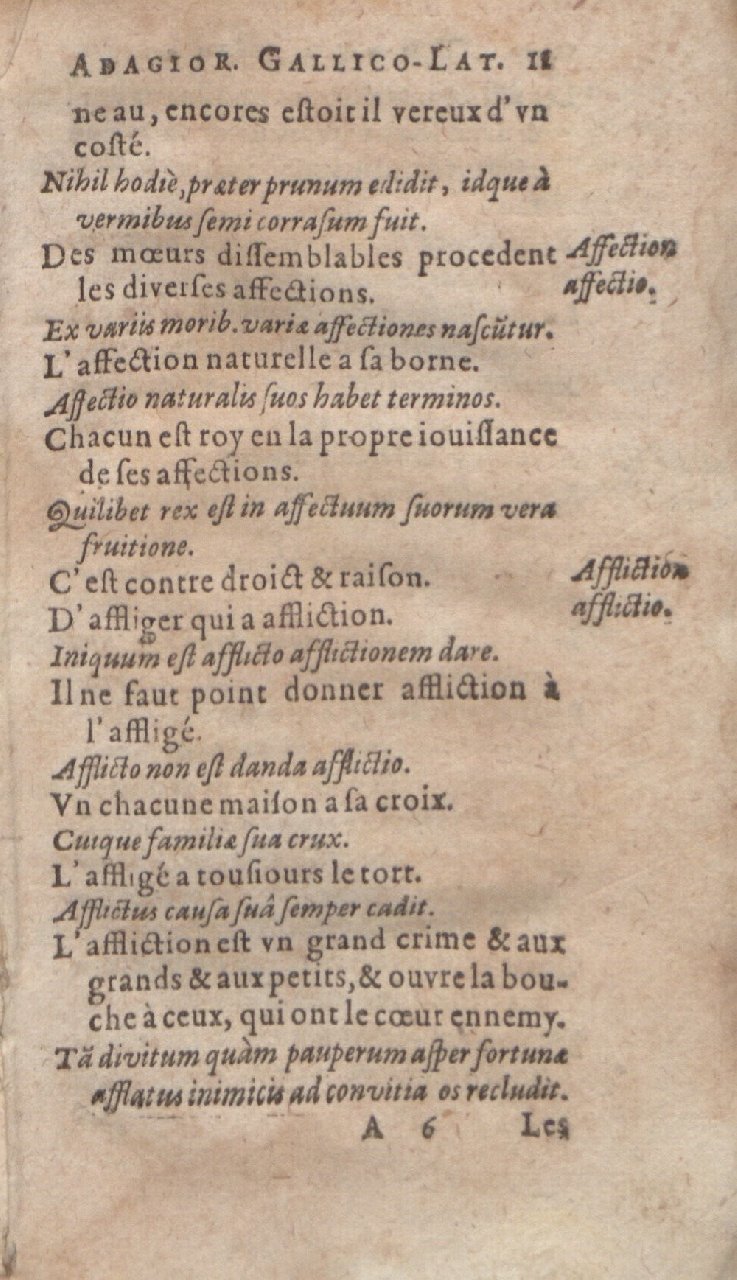 ADAGIOR. GALLICO-LAT. 11
neau, encores eſtoit il vereux d'vn
coſté.
Nihil hodiè, præter prunum edidit, idque à
vermibus ſemi corraſum fuit.
Des mœurs diſſemblables procedent
les diverſes affections.
Affection
affectio.
Ex variis morib. variæ affectiones naſcūtur.
L'affection naturelle a ſa borne.
Affectio naturalis ſuos habet terminos.
Chacun eſt roy en la propre iouiſſance
de ſes affections.
Quilibet rex eſt in affectuum ſuorum vera
fruitione.
C'eſt contre droict & raiſon.
Affliction
afflictio.
D'affliger qui a affliction.
Iniquum eſt afflicto afflictionem dare.
Il ne faut point donner affliction à
l'affligé.
Afflicto non eſt danda afflictio.
Vn chacune maiſon a ſa croix.
Cuique familiæ ſua crux.
L'affligé a touſiours le tort.
Afflictus cauſa ſuâ ſemper cadit.
L'affliction eſt vn grand crime & aux
grands & aux petits, & ouvre la bou-
che à ceux, qui ont le cœur ennemy.
Tā divitum quàm pauperum aſper fortunæ
afflatus inimicis ad convitia os recludit.
A 6 Les